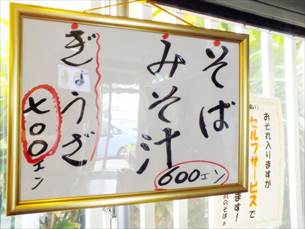 そば
みそ汁
600エン
ぎょうざ
おそれ入りますが
セルフサービスで
ます！